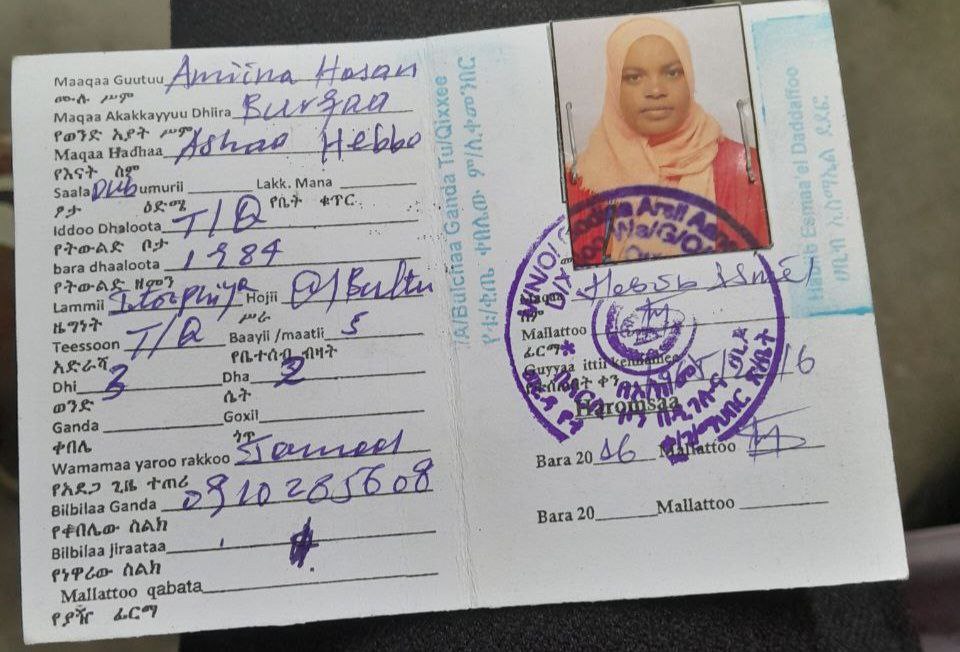 Maaqaa Guutuu Amiina Hasan
ሙሉ ሥም
Maqaa Akakkayyuu Dhiira Burqaa
የወንድ አያት ሥም
Maqaa Hadhaa Ashaa Hebbo
የእናት ስም
Saala Dub umurii ______ Lakk. Mana ______
ፆታ ዕድሜ የቤት ቁጥር
Iddoo Dhaloota T/Q
የትውልድ ቦታ
bara dhaaloota 1984
የትውልድ ዘመን
Lammii Itoophiya Hojii Q/Bultu
ዜግነት ሥራ
Teessoon T/Q Baayii /maatii 5
አድራሻ የቤተሰብ ብዛት
Dhi 3 Dha 2
ወንድ ሴት
Ganda ______ Goxii ______
ቀበሌ ጎጥ
Wamamaa yaroo rakkoo
የአደጋ ጊዜ ተጠሪ
Bilbilaa Ganda 0910285608
የቀበሌው ስልክ
Bilbilaa jiraataa
የነዋሪው ስልክ
Mallattoo qabata
የያዥ ፊርማ
/A/Bulchaa Ganda Tu/Qixxee
Habiib Esmaa'el Daddaffoo
ሀቢብ ኢስማኤል ደዳፎ
ስም
Mallattoo
ፊርማ
Guyyaa ittii kennamee
Haromsaa
Bara 20 16 Mallattoo
Bara 20______Mallattoo ______